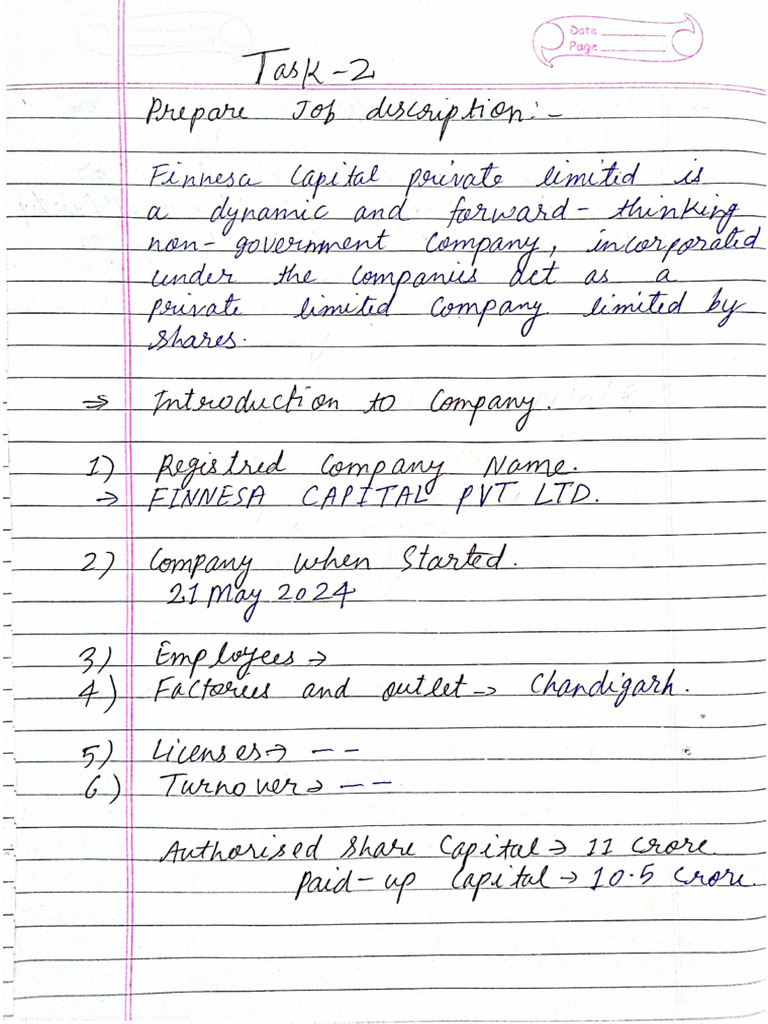 Date
Page
Task-2
Prepare Job description:-
Finnesa Capital private limited is
a dynamic and forward-thinking
non-government company, incorporated
under the companies act as a
private limited Company limited by
shares.
⇒ Introduction to Company.
1) Registred Company Name.
→ FINNESA CAPITAL PVT LTD.
2) Company when Started.
21 May 2024
3) Employees →
4) Factories and outlet → Chandigarh.
5) Licenses → --
6) Turnover → --
Authorised Share Capital → 11 Crore.
Paid-up Capital → 10.5 Crore.